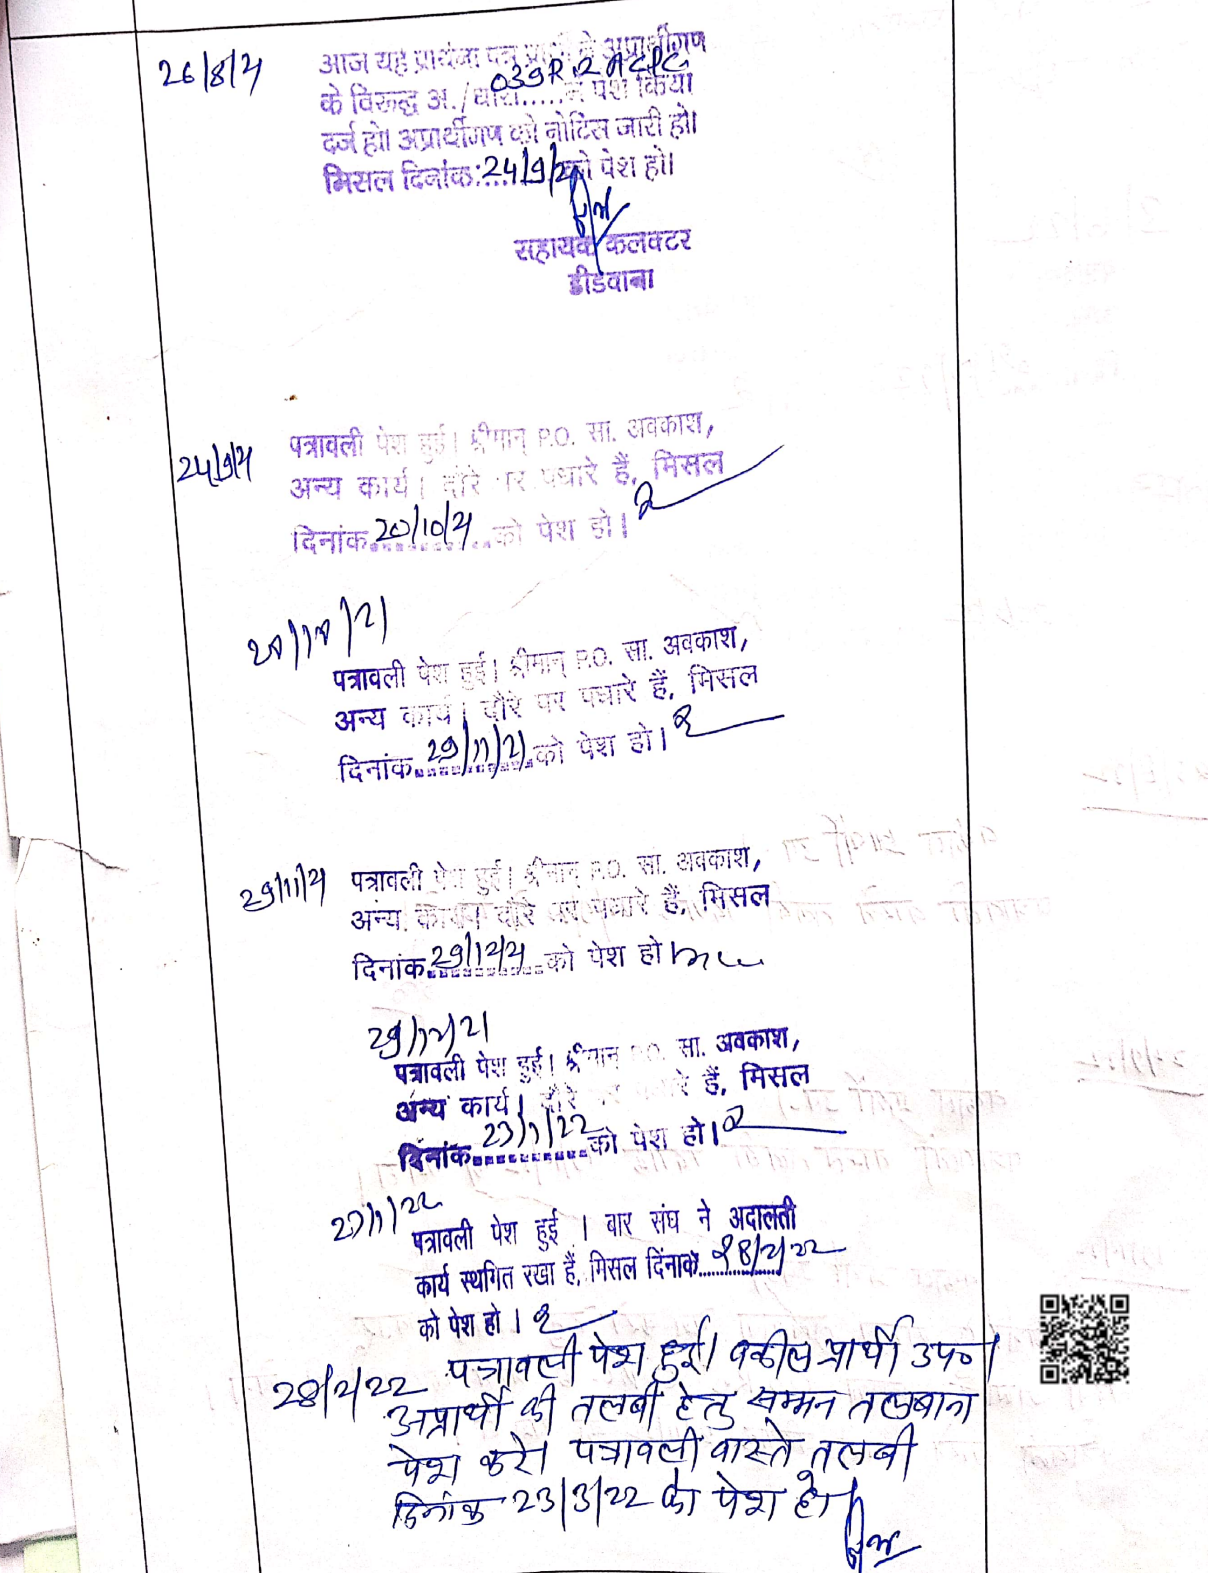 26/8/21
आज यह प्रार्थना पत्र प्रार्थी ने अप्रार्थीगण
के विरुद्ध अ./धारा..... में पेश किया
दर्ज हो। अप्रार्थीगण को नोटिस जारी हो।
मिसल दिनांक: 24/9/21 को पेश हो।
सहायक कलक्टर
डीडवाना
24/9/21
पत्रावली पेश हुई। श्रीमान् P.O. सा. अवकाश,
अन्य कार्य। दौरे पर पधारे हैं, मिसल
दिनांक 20/10/21 को पेश हो।
20/10/21
पत्रावली पेश हुई। श्रीमान् P.O. सा. अवकाश,
अन्य कार्य। दौरे पर पधारे हैं, मिसल
दिनांक 29/11/21 को पेश हो।
29/11/21
पत्रावली पेश हुई। श्रीमान् P.O. सा. अवकाश,
अन्य कार्य। दौरे पर पधारे हैं, मिसल
दिनांक 29/12/21 को पेश हो
29/12/21
पत्रावली पेश हुई। श्रीमान P.O. सा. अवकाश,
अन्य कार्य। दौरे पर पधारे हैं, मिसल
दिनांक 27/1/22 को पेश हो।
27/1/22
पत्रावली पेश हुई । बार संघ ने अदालती
कार्य स्थगित रखा हैं, मिसल दिंनाक 28/2/22
को पेश हो ।
28/2/22 पत्रावली पेश हुई। वकील प्रार्थी उप०।
अप्रार्थी की तलबी हेतु सम्मन तलबाना
पेश करे। पत्रावली वास्ते तलबी
दिनांक 23/3/22 को पेश हो।